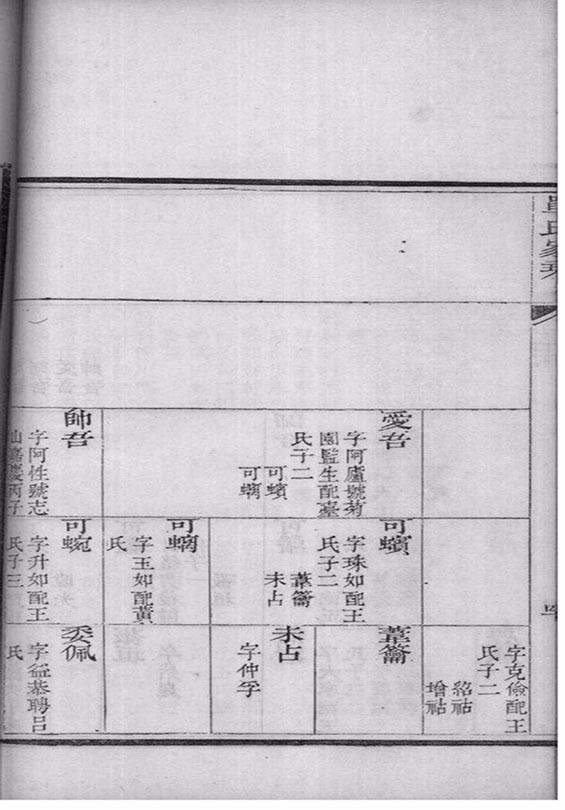 氏家乘
愛吾
字阿廬號菊
園監生配臺
氏子二
可蠙
可螭
帥吾
字阿性號志
嘉慶丙子
可蠙
字珠如配王
氏子二
葦籥
未占
可螭
字玉如配黃
氏
可蜿
字升如配王
氏子三
字克儉配王
氏子二
紹祜
增祜
葦籥
未占
字仲孚
委佩
字益恭聘呂
氏